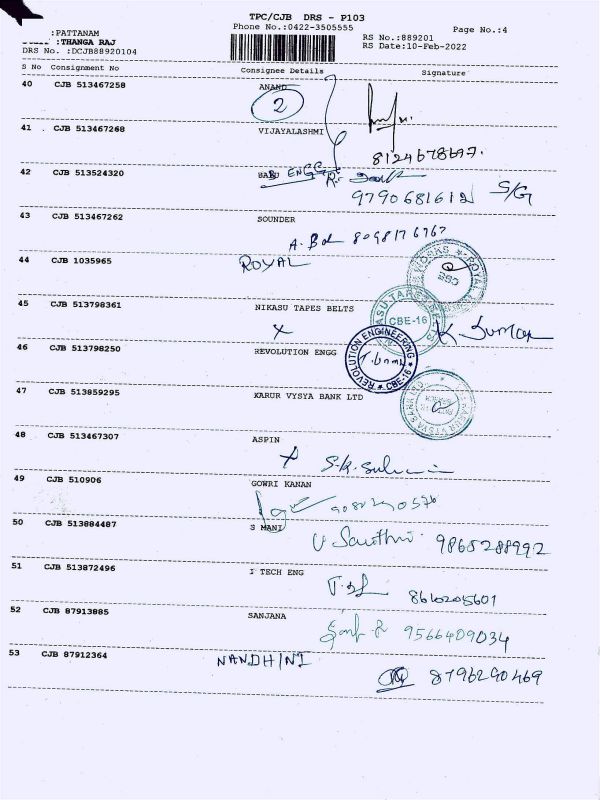 TPC/CJB DRS - P103
:PATTANAM
Phone No.:0422-3505555
Page No.:4
:THANGA RAJ
RS No.:889201
DRS No. :DCJB88920104
RS Date:10-Feb-2022
S No Consignment No Consignee Details Signature
40 CJB 513467258 ANAND
2
41 . CJB 513467268 VIJAYALASHMI
8124678697.
42 CJB 513524320 BABU ENGG
9790681612 S/G
43 CJB 513467262 SOUNDER
8098176767
44 CJB 1035965 ROYAL
45 CJB 513798361 NIKASU TAPES BELTS
CBE-16
X K. Suman
46 CJB 513798250 REVOLUTION ENGG
REVOLUTION ENGINEERING
CBE-16
47 CJB 513859295 KARUR VYSYA BANK LTD
48 CJB 513467307 ASPIN
X
49 CJB 510906 GOWRI KANAN
50 CJB 513884487 S MANI
9865288992
51 CJB 513872496 I TECH ENG
8610205601
52 CJB 87913885 SANJANA
9566409034
53 CJB 87912364 NANDHINI
8796290469